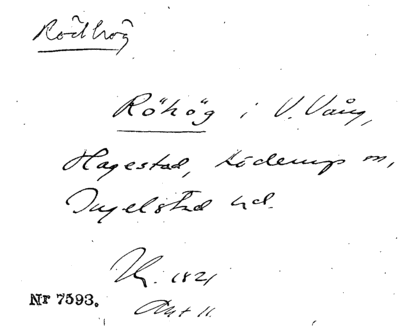 Rödhög
Röhög i V. Vång,
Hagestad, Löderup sn,
Ingelstad hd.
1821
Nr 7593. Akt 11.